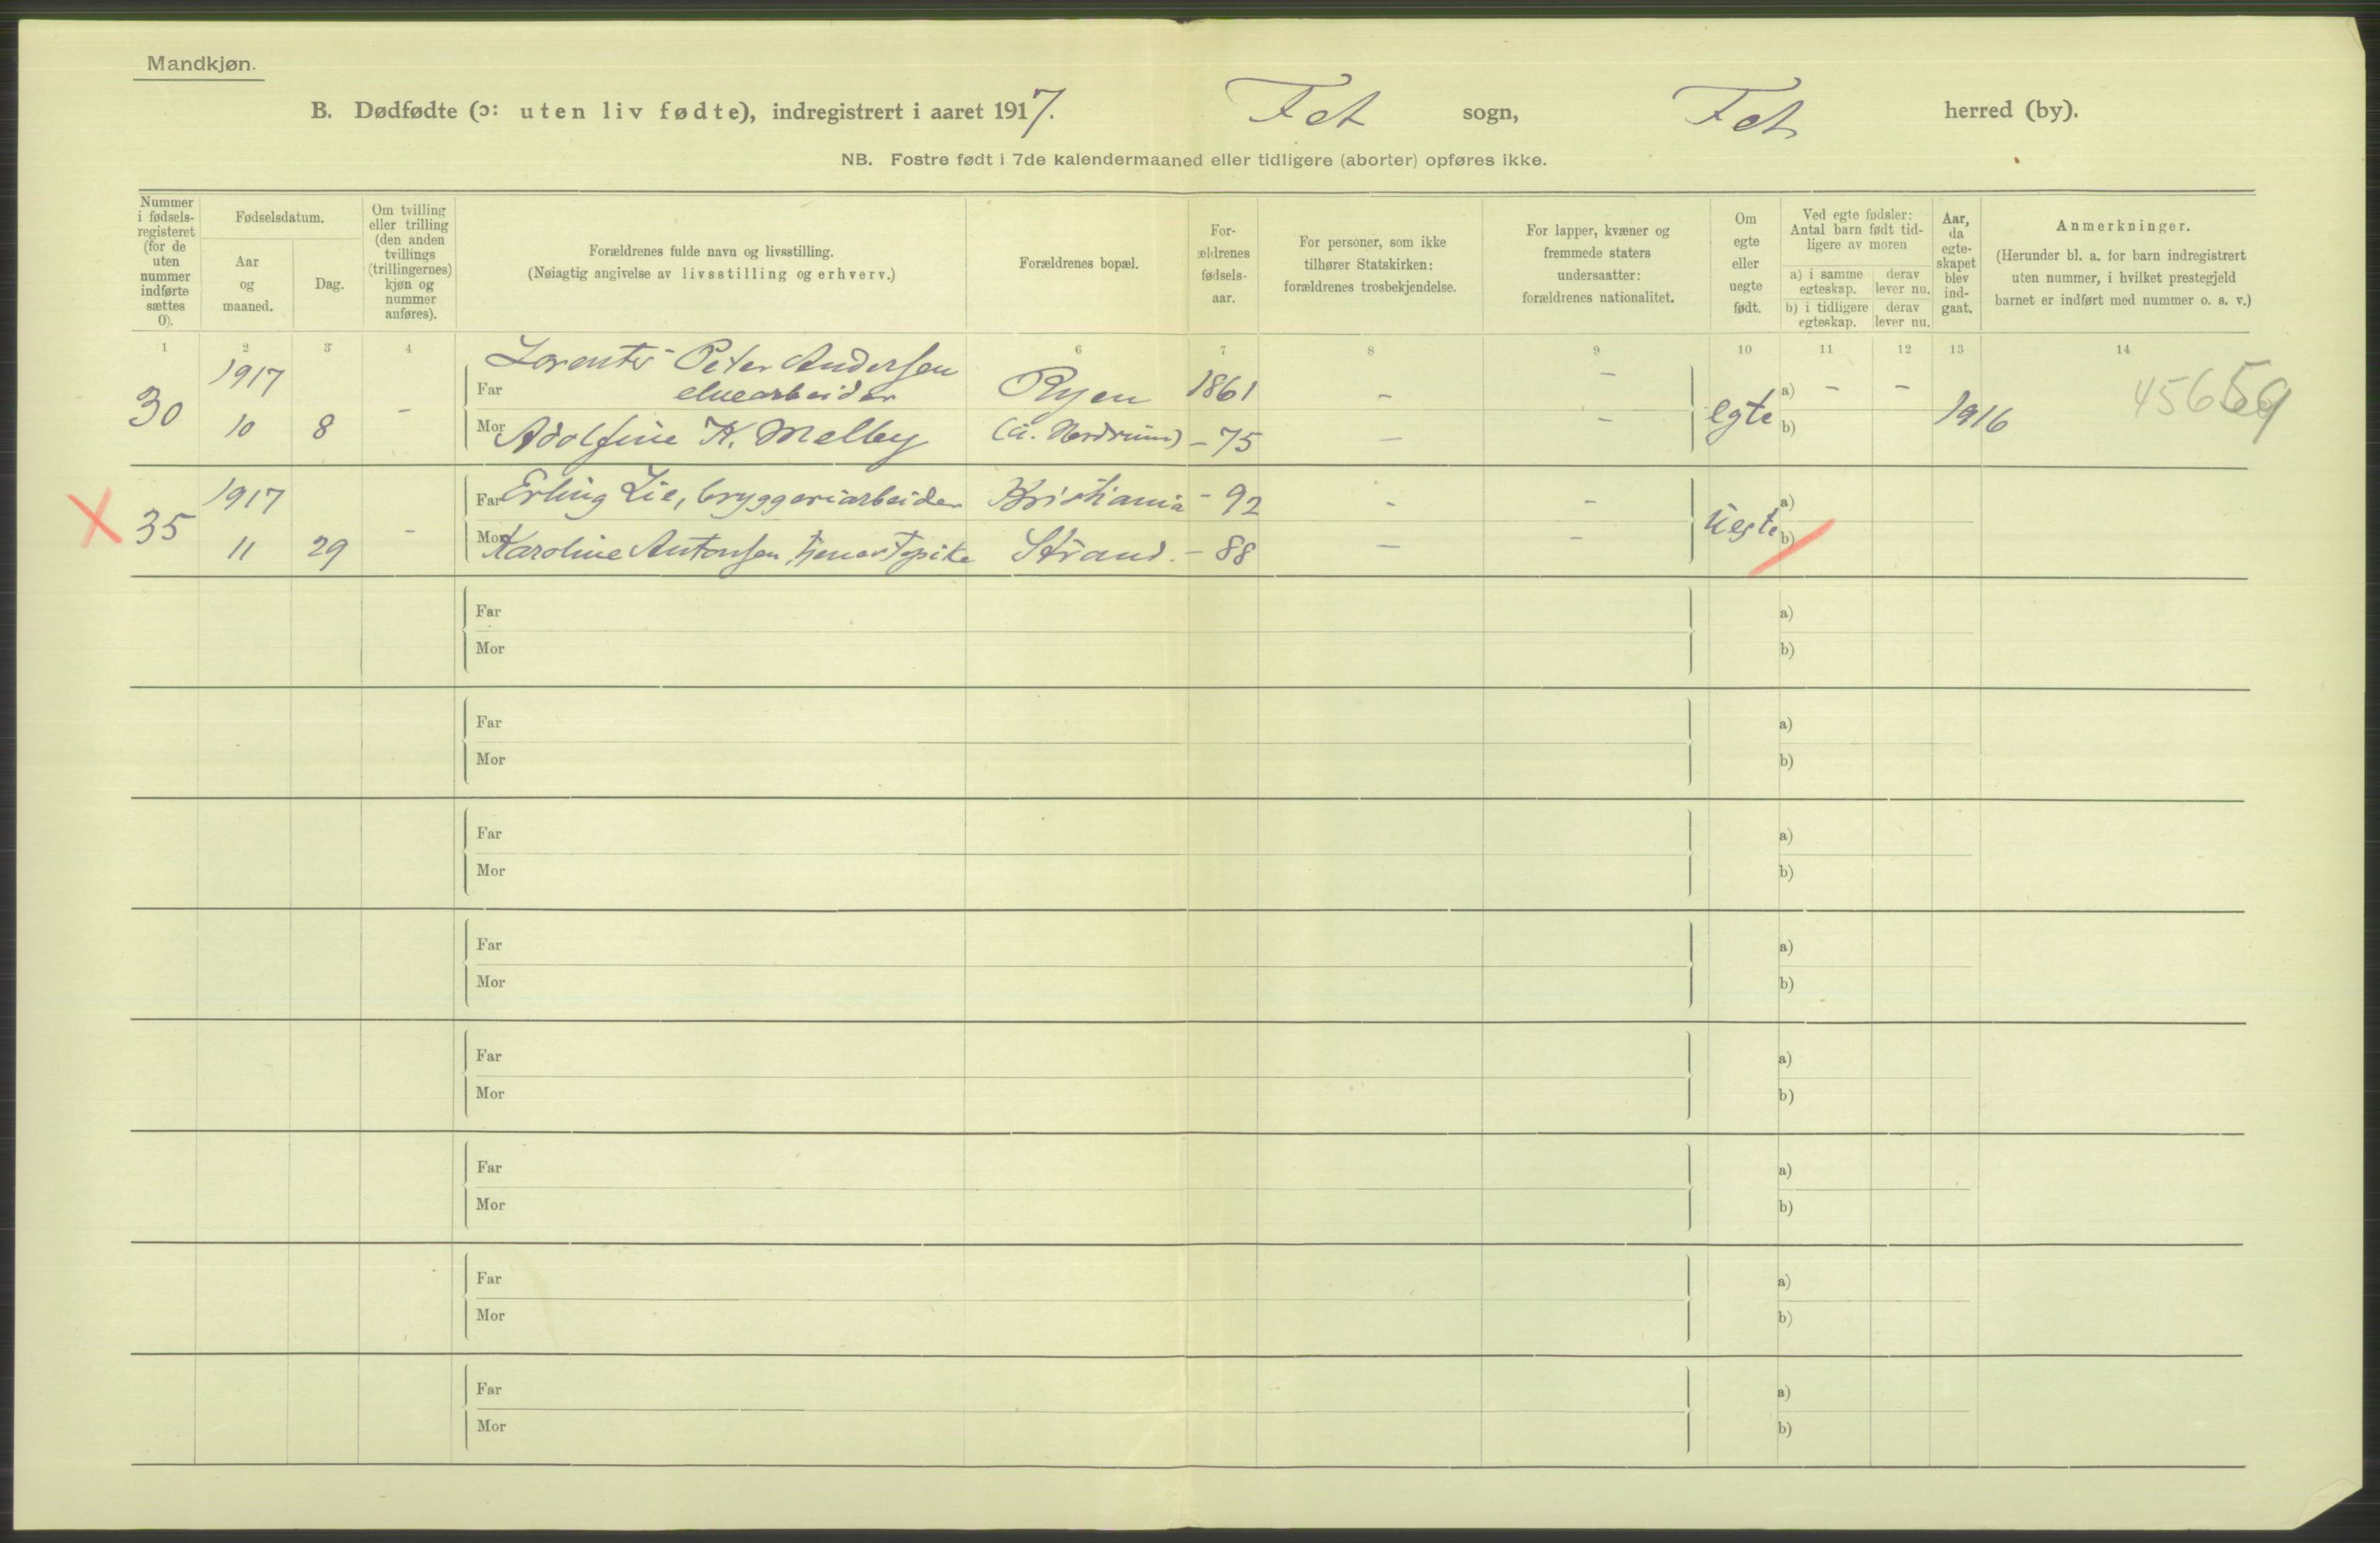 Mandkjøn.
B. Dødfødte (ɔ: uten liv fødte), indregistrert i aaret 1917. Fet sogn, Fet herred (by).
NB. Fostre født i 7de kalendermaaned eller tidligere (aborter) opføres ikke.
Nummer i fødselsregisteret (for de uten nummer indførte sættes 0).
Fødselsdatum.
Aar og maaned.
Dag.
Om tvilling eller trilling (den anden tvillings (trillingernes) kjøn og nummer anføres).
Forældrenes fulde navn og livsstilling.
(Nøiagtig angivelse av livsstilling og erhverv.)
Forældrenes bopæl.
Forældrenes fødselsaar.
For personer, som ikke tilhører Statskirken: forældrenes trosbekjendelse.
For lapper, kvæner og fremmede staters undersaatter: forældrenes nationalitet.
Om egte eller uegte født.
Ved egte fødsler: Antal barn født tidligere av moren
a) i samme egteskap.
derav lever nu.
b) i tidligere egteskap.
derav lever nu.
Aar, da egteskapet blev indgaat.
Anmerkninger.
(Herunder bl. a. for barn indregistrert uten nummer, i hvilket prestegjeld barnet er indført med nummer o. s. v.)
1 2 3 4 6 7 8 9 10 11 12 13 14
Lorents Peter Andersen
30 1917 Far elvearbeider Ryen 1861 - - a) - - 45659
10 8 - Mor Adolfine K. Melby Nordrum) - 75 - - egte b) 1916
X 35 1917 Far Erling Lie, bryggeriarbeider Kristiania - 92 - - a)
11 29 - Mor Karoline Antonsen, tjenestepike Strand. - 88 - - uegte b)
Far a)
Mor b)
Far a)
Mor b)
Far a)
Mor b)
Far a)
Mor b)
Far a)
Mor b)
Far a)
Mor b)
Far a)
Mor b)
Far a)
Mor b)